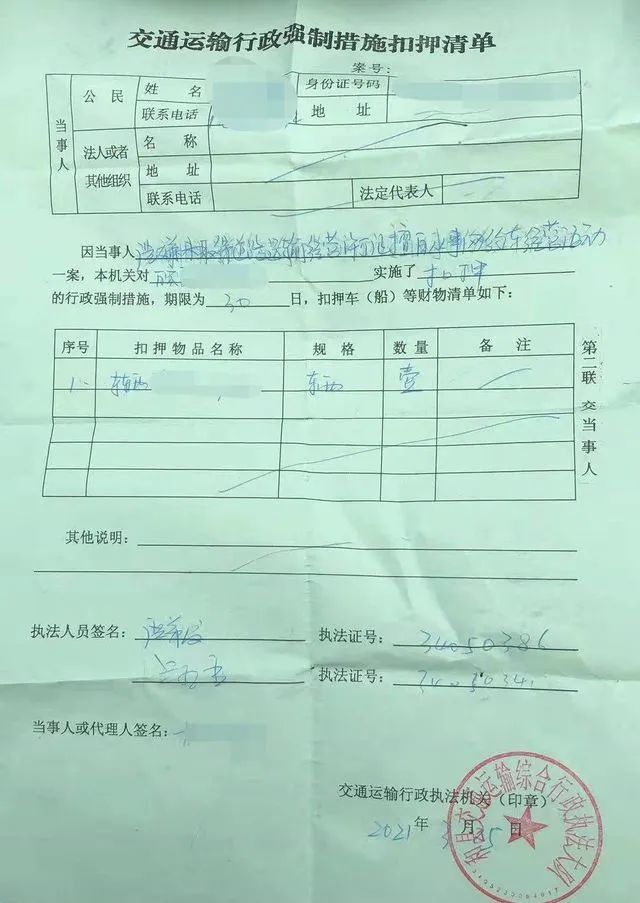 交通运输行政强制措施扣押清单
案号:
当事人
公民
姓名
身份证号码
联系电话
地址
法人或者
其他组织
名称
地址
联系电话
法定代表人
因当事人 涉嫌未取得道路运输经营许可证擅自从事网约车经营活动
一案，本机关对 实施了 扣押
的行政强制措施，期限为 30 日，扣押车（船）等财物清单如下：
序号 扣押物品名称 规格 数量 备注
1、 车辆 车辆 壹
第二联 交当事人
其他说明：
执法人员签名： 执法证号： 34050386
执法证号： 34050341
当事人或代理人签名：
交通运输行政执法机关（印章）
2021 年 3 月 25 日
交通运输综合行政执法大队